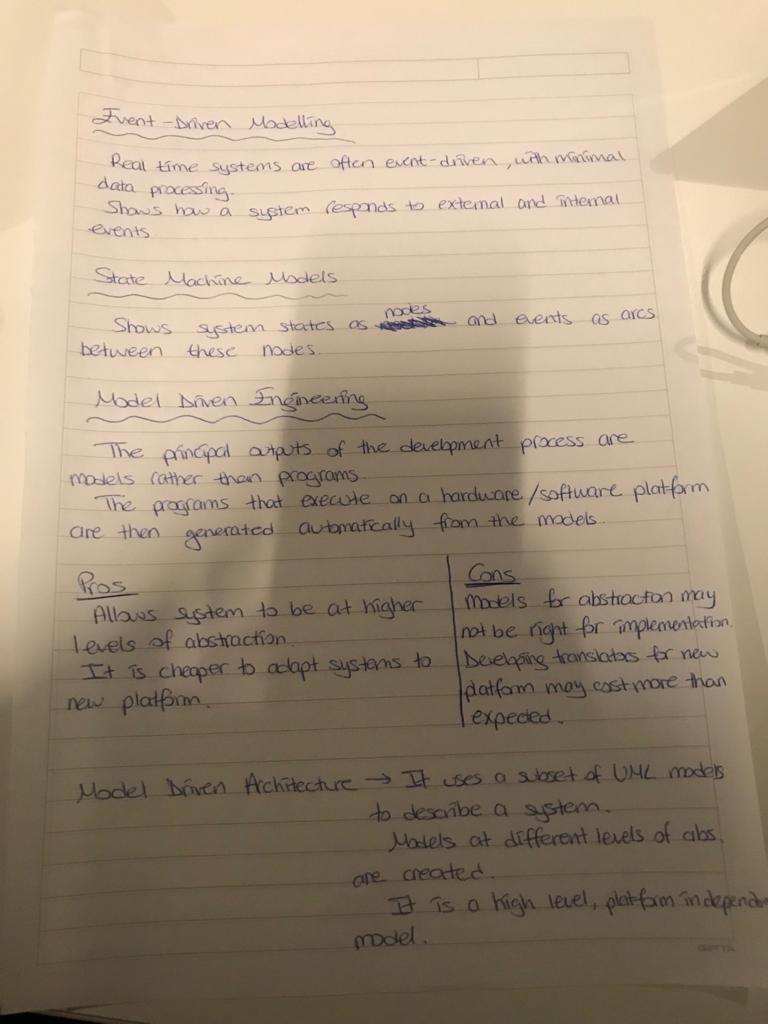 Event-Driven Modelling
Real time systems are often event-driven, with minimal
data processing.
Shows how a system responds to external and internal
events
State Machine Models
nodes
Shows system states as and events as arcs
between these nodes.
Model Driven Engineering
The principal outputs of the development process are
models rather than programs.
The programs that execute on a hardware/software platform
are then generated automatically from the models.
Pros
Allows system to be at higher
levels of abstraction.
It is cheaper to adapt systems to
new platform.
Cons
Models for abstraction may
not be right for implementation.
Developing translators for new
platform may cost more than
expected.
Model Driven Architecture → It uses a subset of UML models
to describe a system.
Models at different levels of abs.
are created.
It is a high level, platform independ
model.